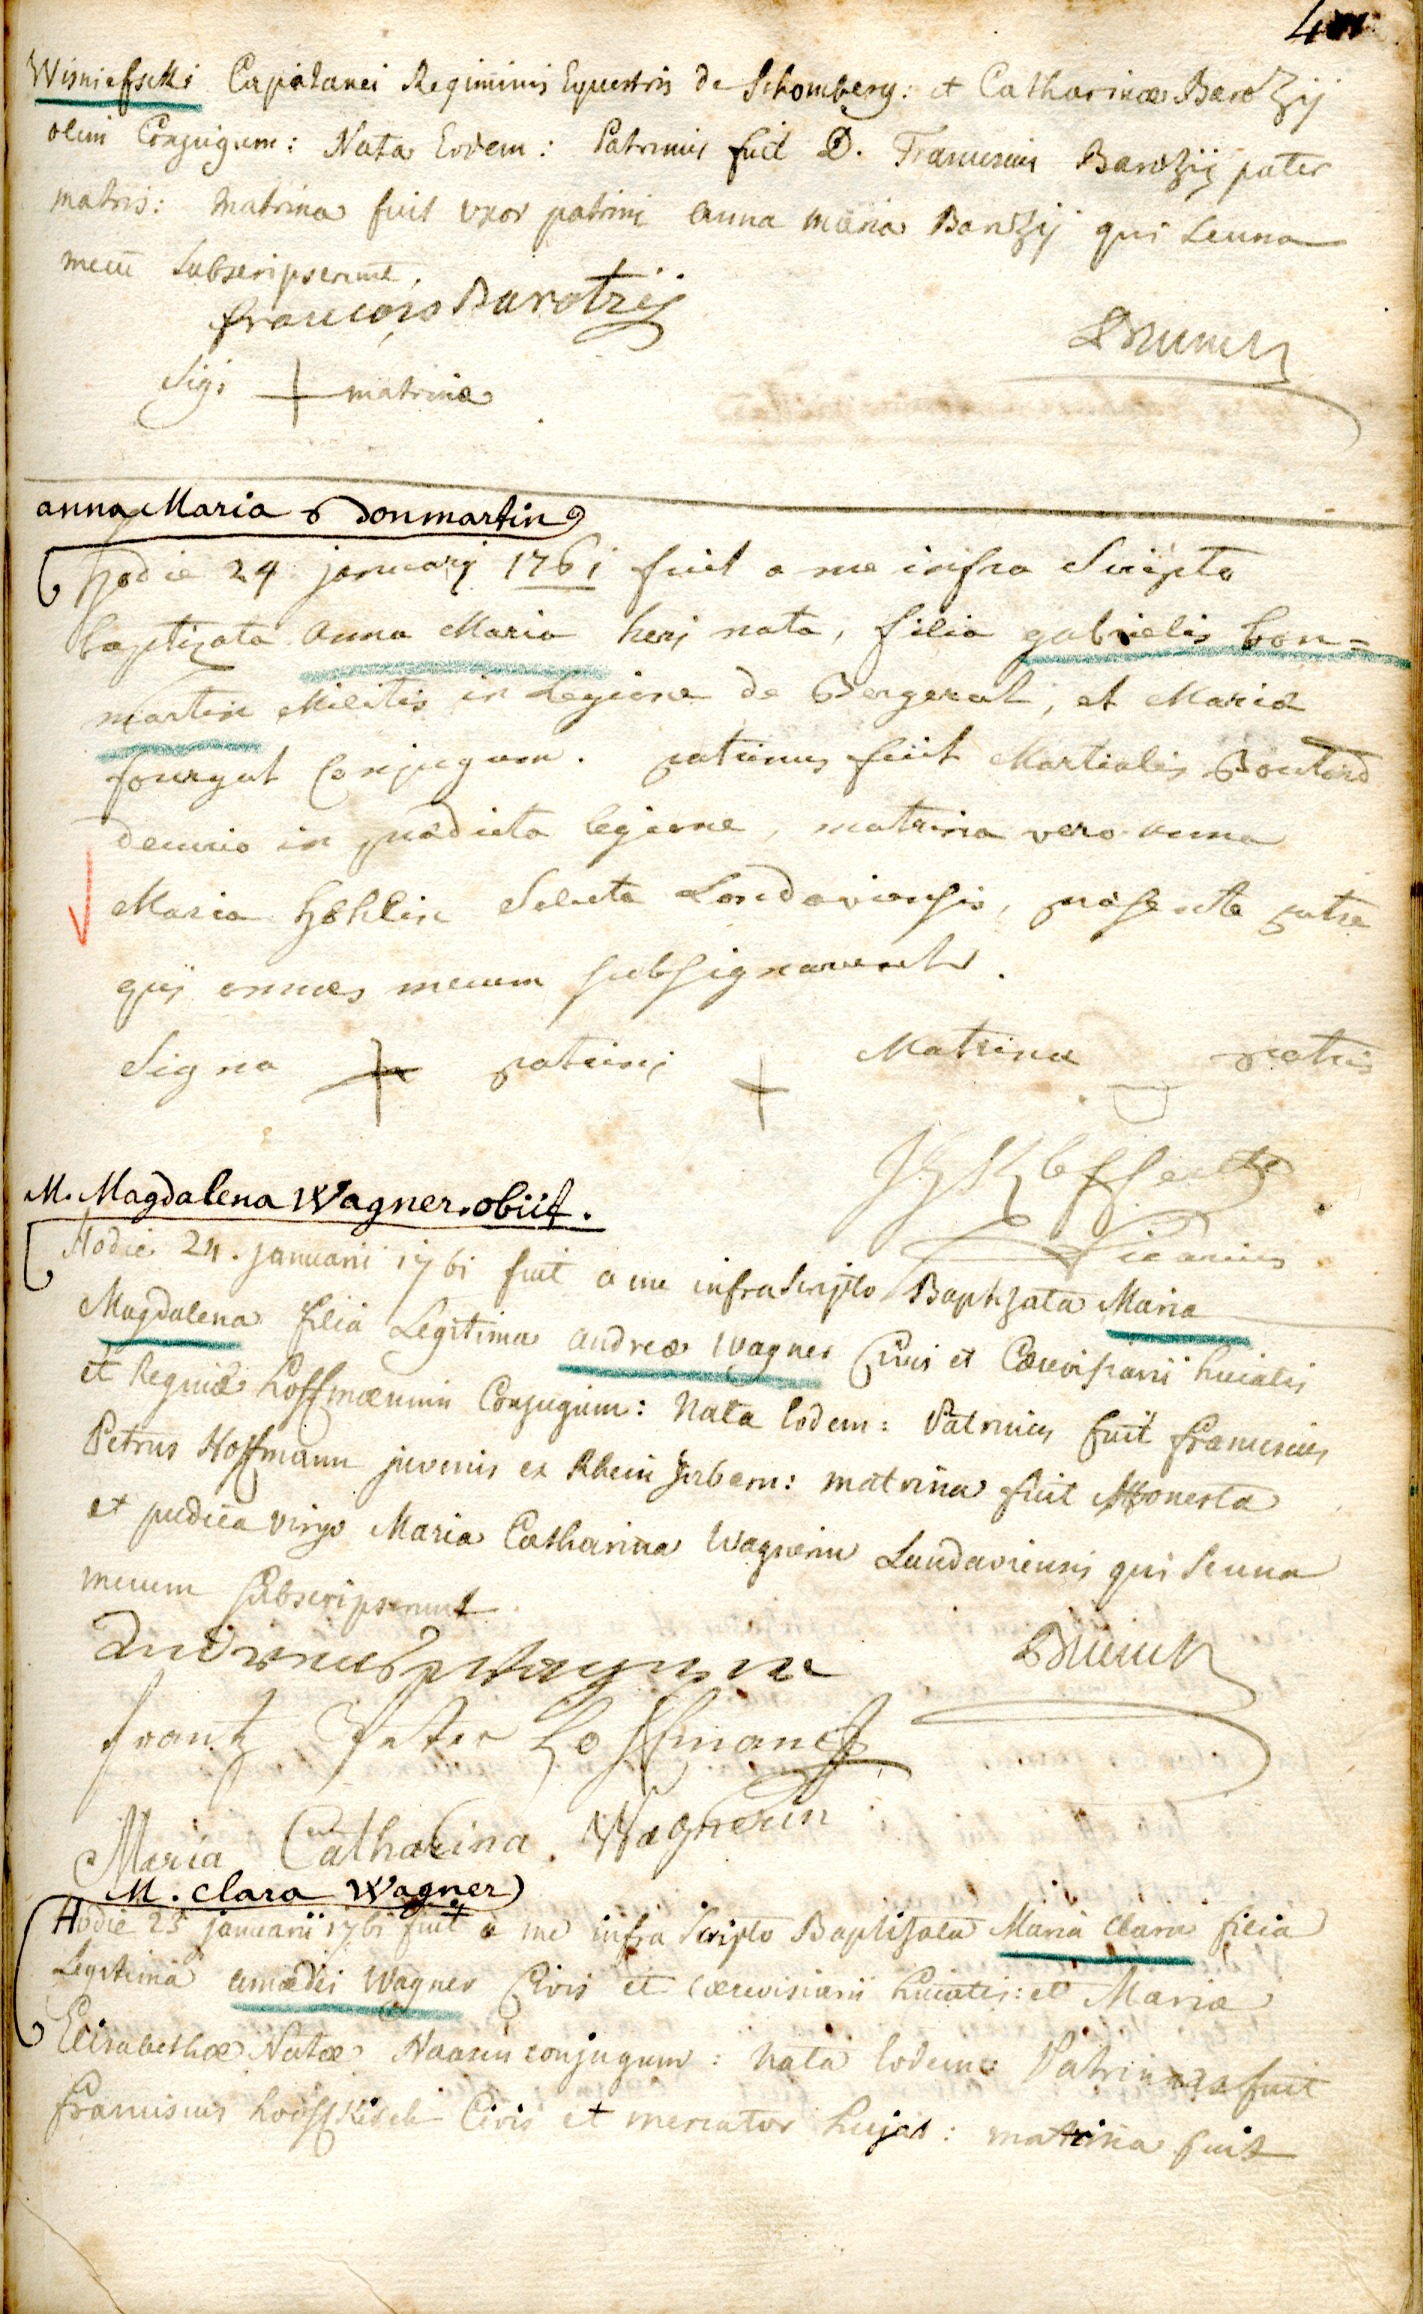 Wisniefscki Capitanei Regiminis Equestris de Schomberg: et Catharinæ Barotzij
olim Conjugum: Nata Eodem: Patrinus fuit D. Franciscus Barotzij pater
matris: Matrina fuit uxor patrini anna maria Barotzij qui seuna
mecū Subscripserunt.
francois Barotzij
Sig: + matrinæ
anna Maria Bonmartin
hodie 24 januarij 1761 fuit a me infra Scripto
baptizata anna Maria heri nata, filia gabrielis bon=
martin Militis in legione de Bergerat, et Maria
fourgat Conjugum. patrinus fuit Martialis Boutard
decurio in prædicta legione, matrina vero anna
Maria Höhlin Soluta Landaviensis, præsente patre
qui omnes mecum subsignaverunt.
Signa + patrini + Matrina patris
Vicarius
M. Magdalena Wagner. obiit.
Hodie 24. januarii 1761 fuit a me infrascripto Baptizata Maria
Magdalena filia Legitima andreæ Wagner Civis et Cærevisiarii huiatis
et Reginæ hoffmännin Conjugum: Nata Eodem: Patrinus fuit franciscus
Petrus Hoffmann juvenis ex Rhein Zabern: matrina fuit Honesta
et pudica virgo Maria Catharina Wagnerin Landaviensis qui seuna
mecum subscripserunt
frantz Peter hoffmann
Maria Catharina Wagnerin
M. Clara Wagner
Hodie 25 januarii 1761 fuit a me infra scripto Baptizata Maria Clara filia
Legitima amædei Wagner Civis et cærevisiarii huiatis: et Mariæ
Elisabethæ Natæ Naasin conjugum: Nata Eodem: Patrinus fuit
franciscus Civis et mercator hujas: matrina fuit